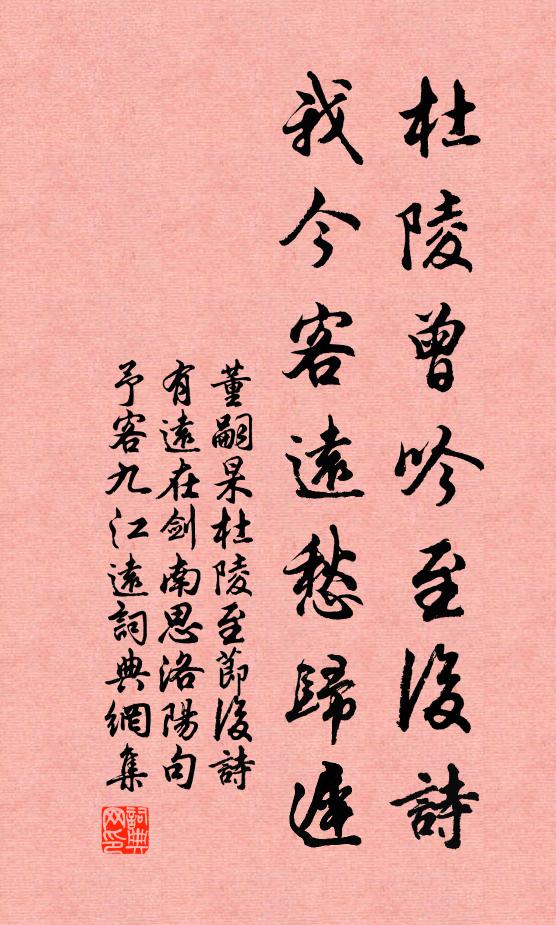 杜陵曾吟至後詩
我今客遠愁歸遲
董嗣杲杜陵至節後詩
有遠在劍南思洛陽句
予客九江遠詞典網集
詞典
网印